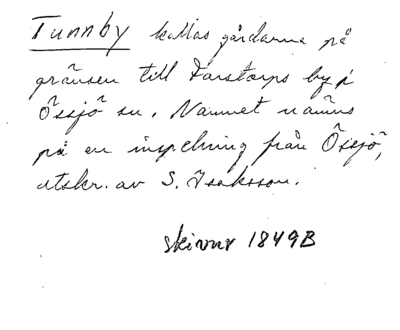 Tunnby kallas gårdarna på
gränsen till Farstorps by i
Össjö sn. Namnet nämns
på en inspelning från Össjö,
utskr. av S. Isaksson.
skivnr 1849B